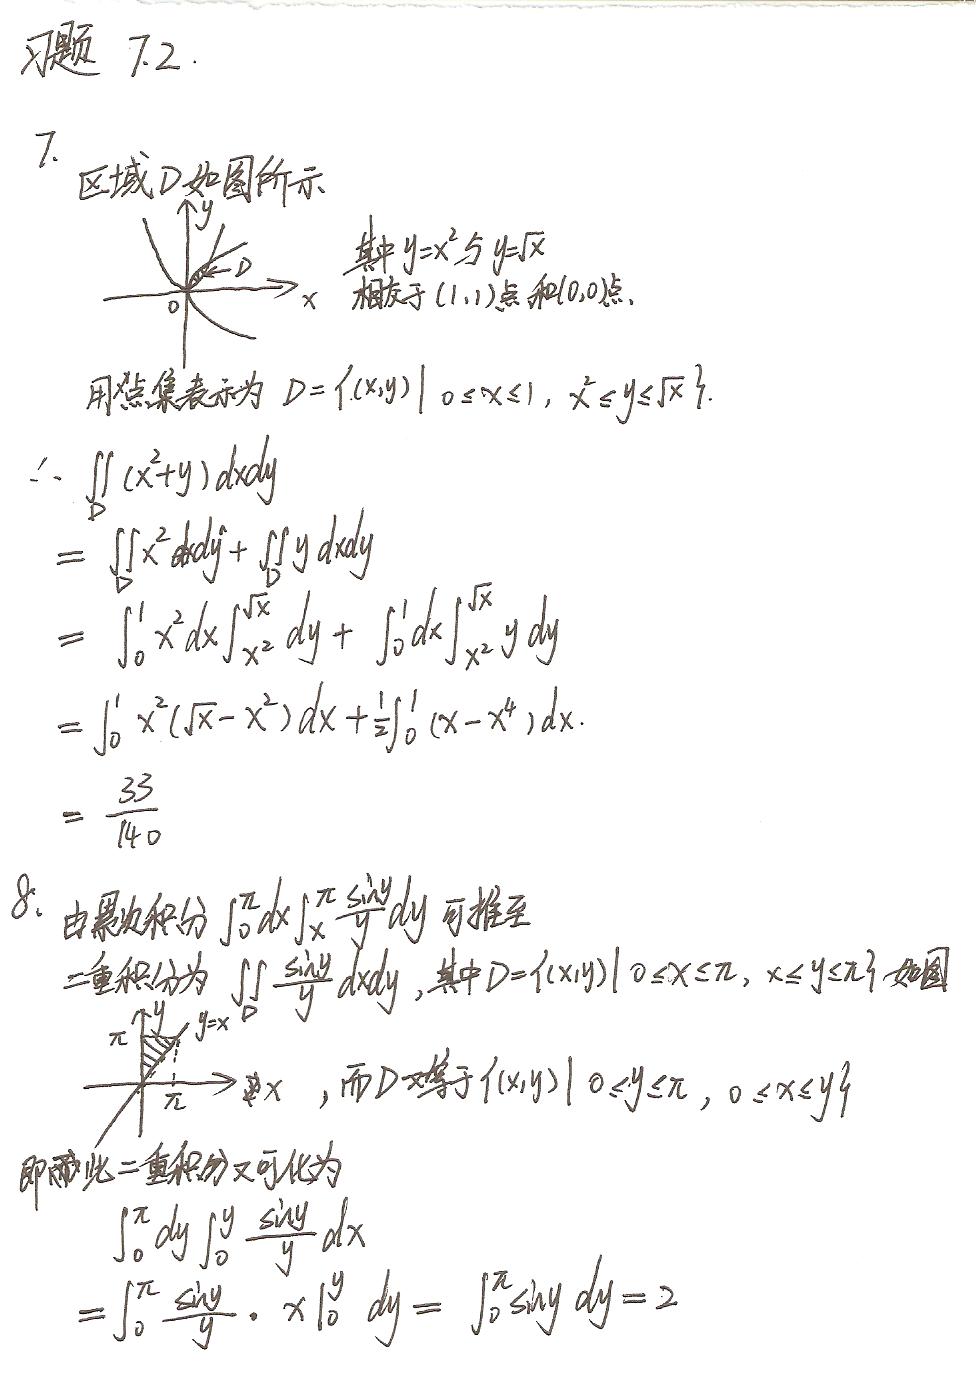 习题 7.2.
7.
区域D如图所示
y
D
0
x
其中 y=x²与y=√x
相交于(1,1)点和(0,0)点.
用点集表示为 D={(x,y)| 0≤x≤1, x²≤y≤√x}.
∴ ∬_D (x²+y)dxdy
= ∬_D x²dxdy + ∬_D y dxdy
= ∫₀¹ x²dx ∫_{x²}^{√x} dy + ∫₀¹ dx ∫_{x²}^{√x} y dy
= ∫₀¹ x²(√x - x²)dx + ½∫₀¹ (x - x⁴)dx.
= 33/140
8. 由累次积分 ∫₀^π dx ∫_x^π siny/y dy 可推至
二重积分为 ∬_D siny/y dxdy, 其中D={(x,y)| 0≤x≤π, x≤y≤π} 如图
y
y=x
π
π
x
, 而D又等于{(x,y)| 0≤y≤π, 0≤x≤y}
即此二重积分又可化为
∫₀^π dy ∫₀^y siny/y dx
= ∫₀^π siny/y · x|₀^y dy = ∫₀^π siny dy = 2